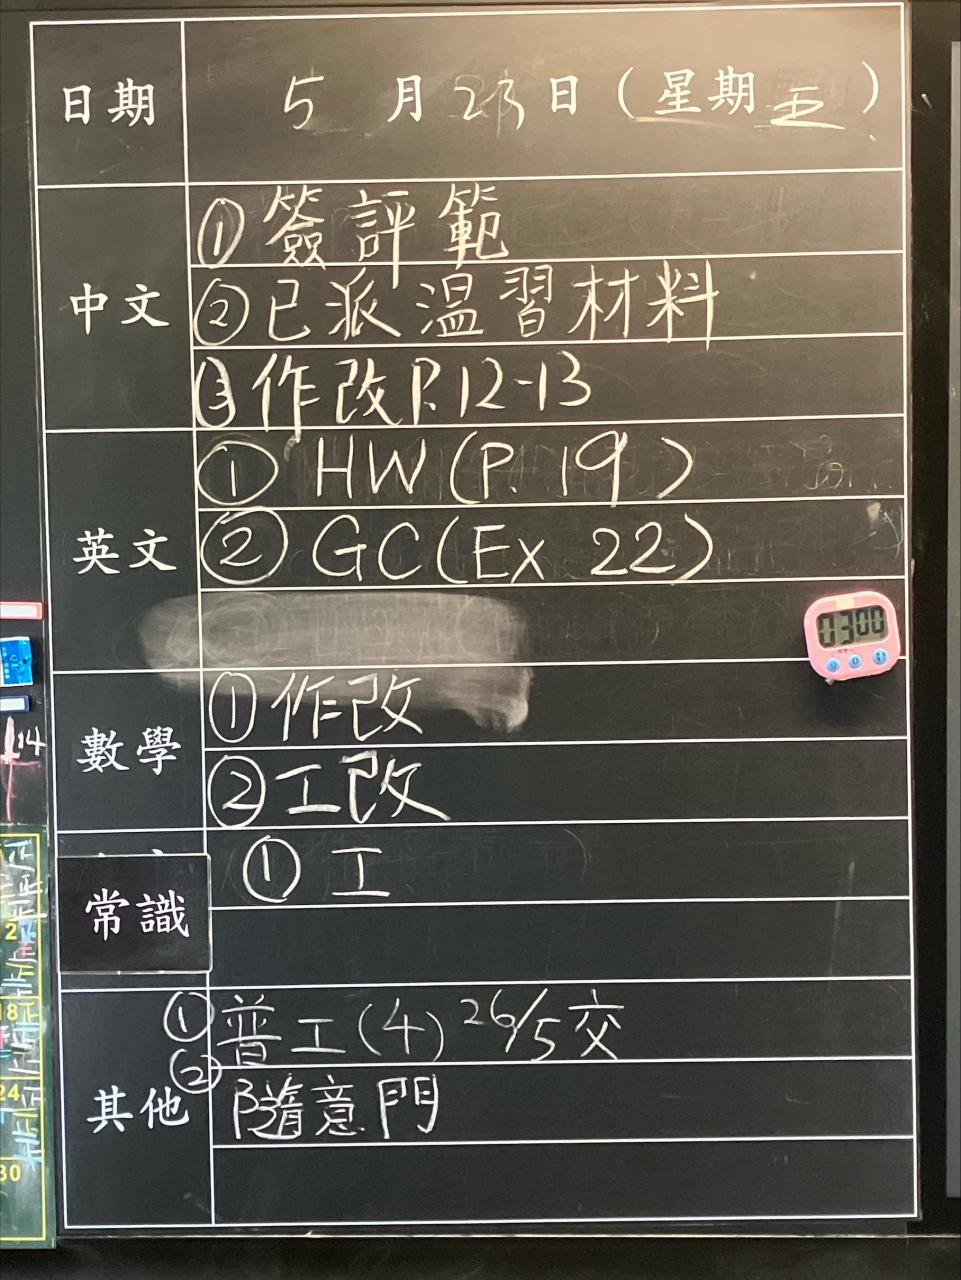 日期 5 月 23 日 (星期五)
中文
① 簽評範
② 已派溫習材料
③ 作改P.12-13
英文
① HW(P. 19)
② GC(Ex 22)
1300
數學
① 作改
② 工改
常識
① 工
其他
① 普工(4) 26/5交
② 隨意門
14
2
18
24
30